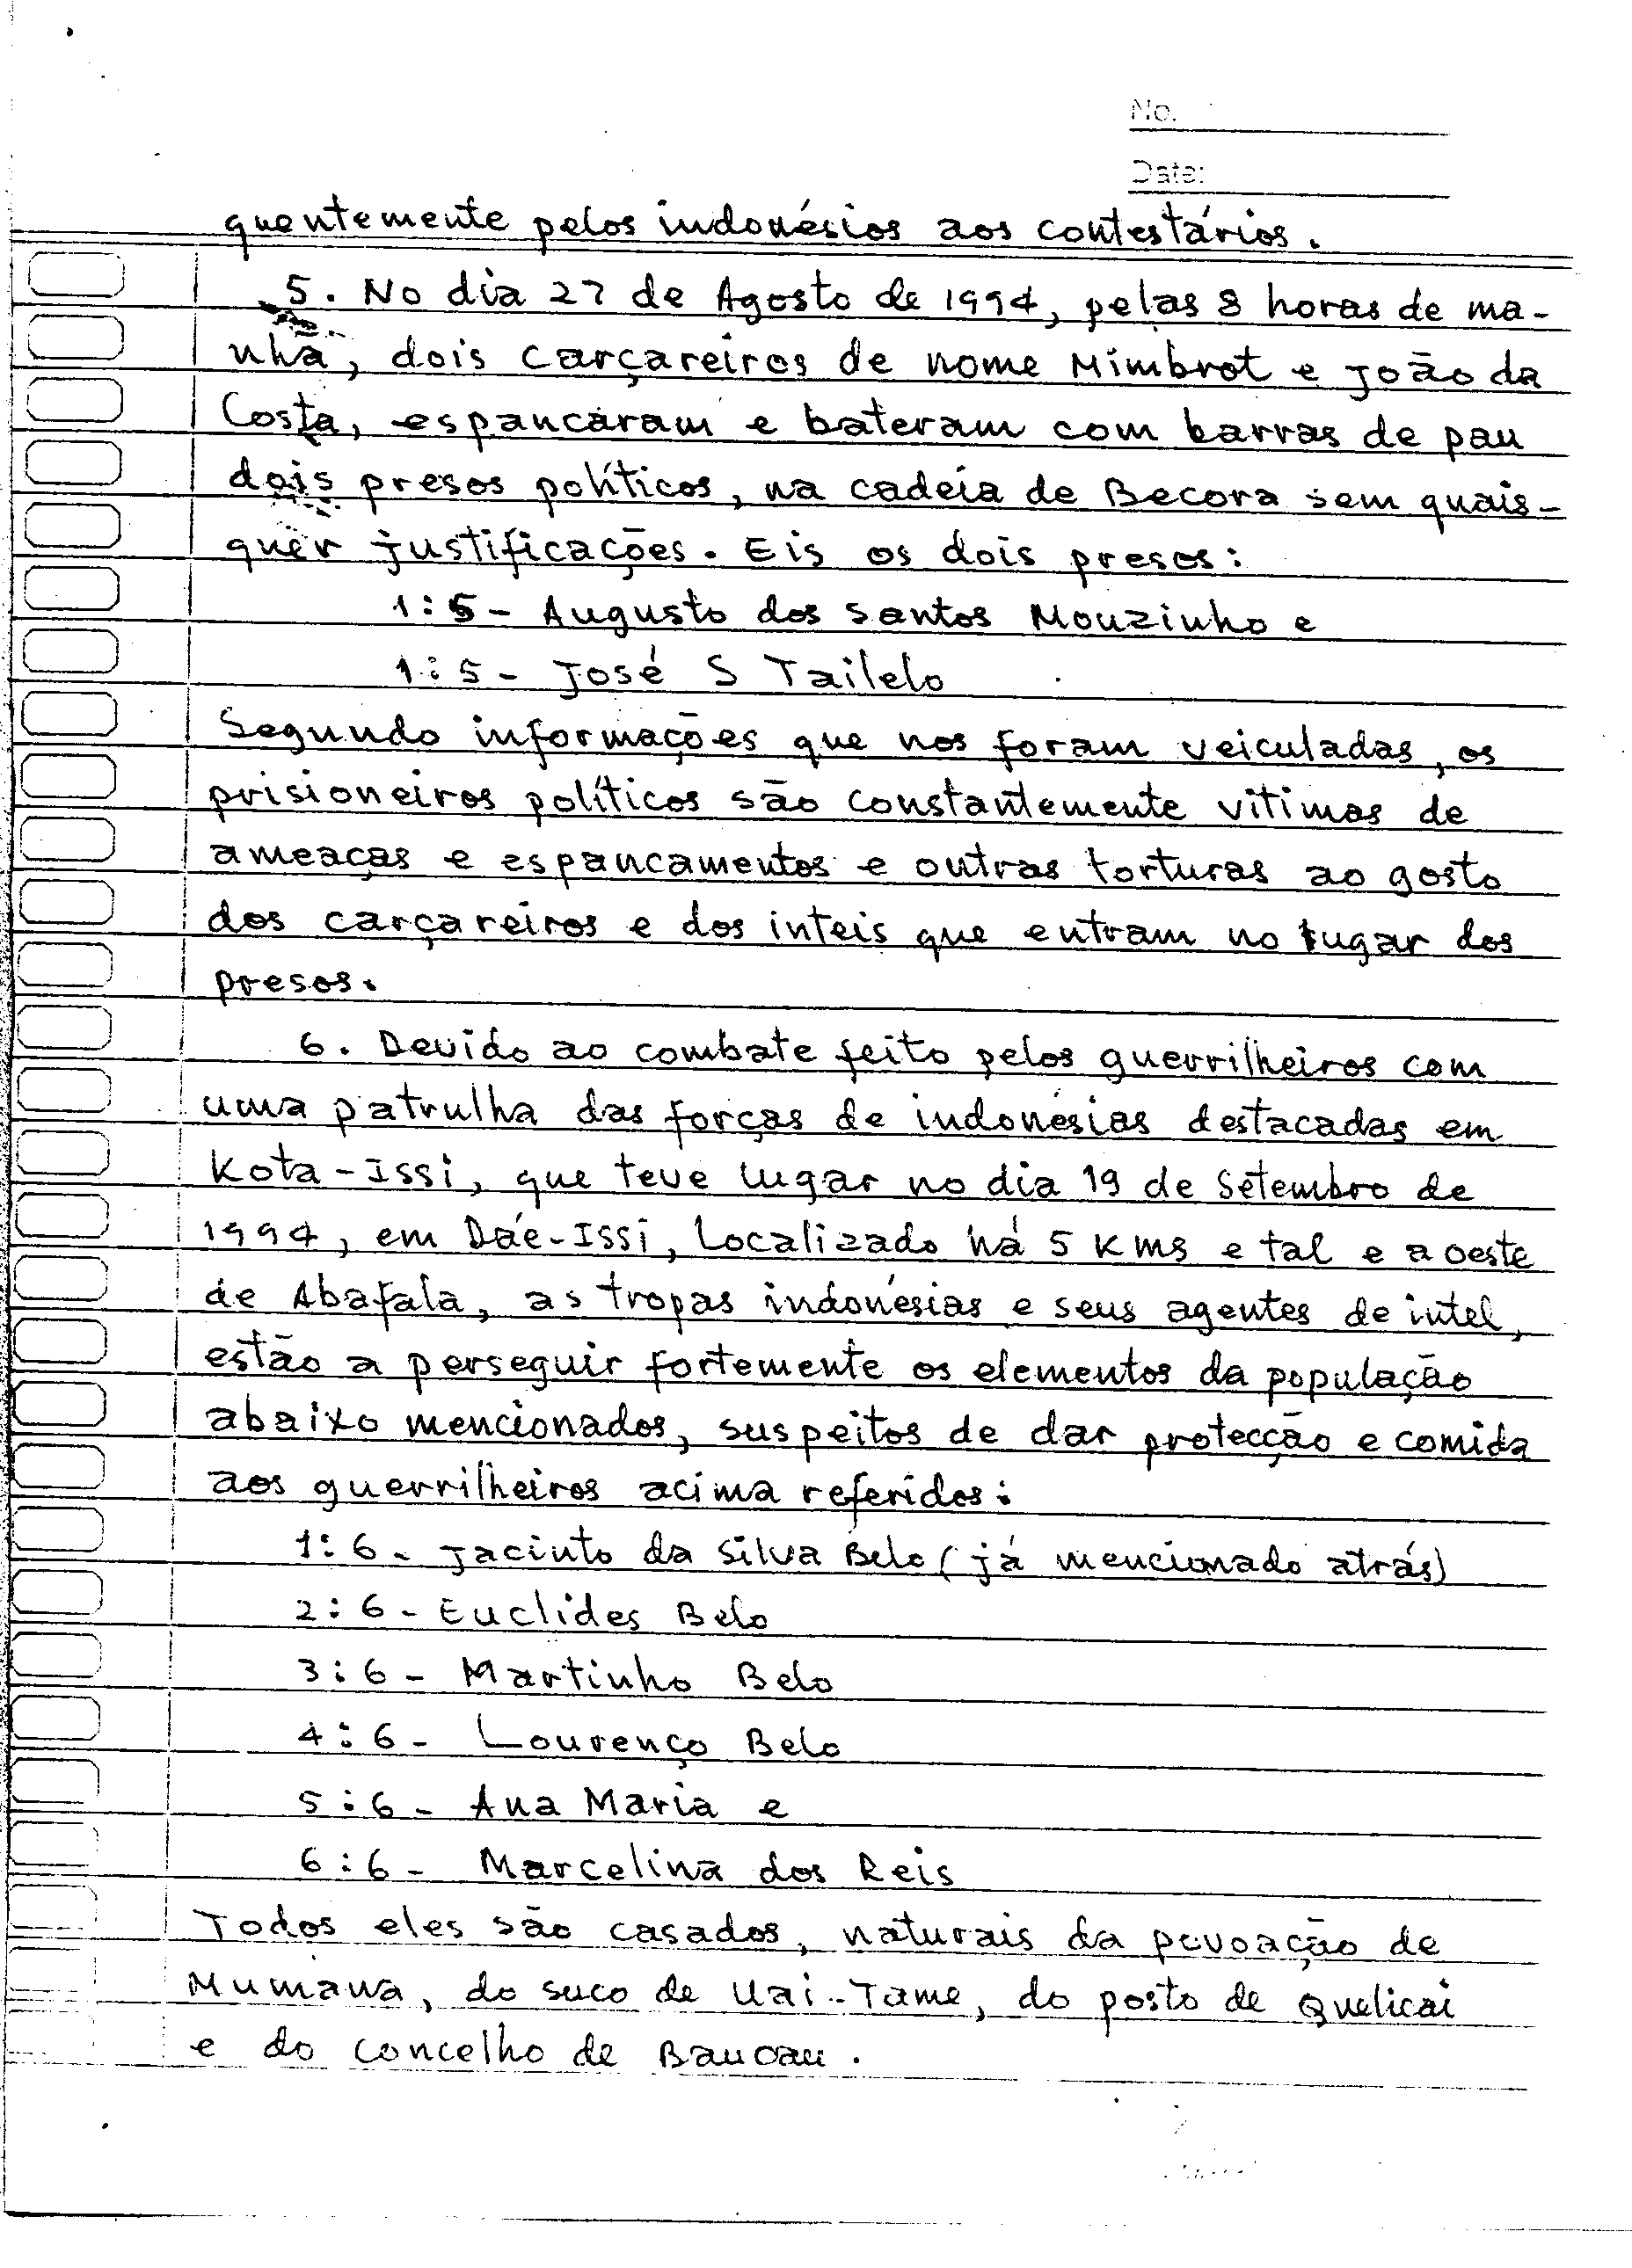 No.
Date:
quentemente pelos indonésios aos contestários.
5. No dia 27 de Agosto de 1994, pelas 8 horas de ma-
nhã, dois carçareiros de nome Mimbrot e João da
Costa, espancaram e bateram com barras de pau
dois presos políticos, na cadeia de Becora sem quais-
quer justificações. Eis os dois presos:
1:5 - Augusto dos Santos Mouzinho e
1:5 - José S Tailelo
Segundo informações que nos foram veiculadas, os
prisioneiros políticos são constantemente vitimas de
ameaças e espancamentos e outras torturas ao gosto
dos carçareiros e dos inteis que entram no lugar dos
presos.
6. Devido ao combate feito pelos guerrilheiros com
uma patrulha das forças de indonésias destacadas em
Kota-Issi, que teve lugar no dia 19 de Setembro de
1994, em Dáe-Issi, localizado há 5 Kms e tal e a oeste
de Abafala, as tropas indonésias e seus agentes de intel,
estão a perseguir fortemente os elementos da população
abaixo mencionados, suspeitos de dar protecção e comida
aos guerrilheiros acima referidos:
1:6 - Jacinto da Silva Belo (já mencionado atrás)
2:6 - Euclides Belo
3:6 - Martinho Belo
4:6 - Lourenço Belo
5:6 - Ana Maria e
6:6 - Marcelina dos Reis
Todos eles são casados, naturais da povoação de
Mumana, do suco de Uai-Tame, do posto de Quelicai
e do concelho de Baucau.